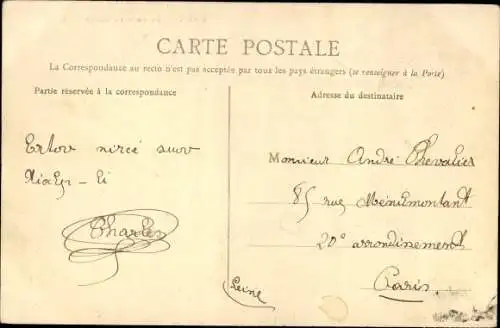 CARTE POSTALE
La Correspondance au recto n'est pas acceptée par tous les pays étrangers (se renseigner à la Poste)
Partie réservée à la correspondance
Adresse du destinataire
Ertov nircé suov
Charles
Monsieur André Chevalier
85 rue Ménilmontant
20e arrondinement
Paris
Seine